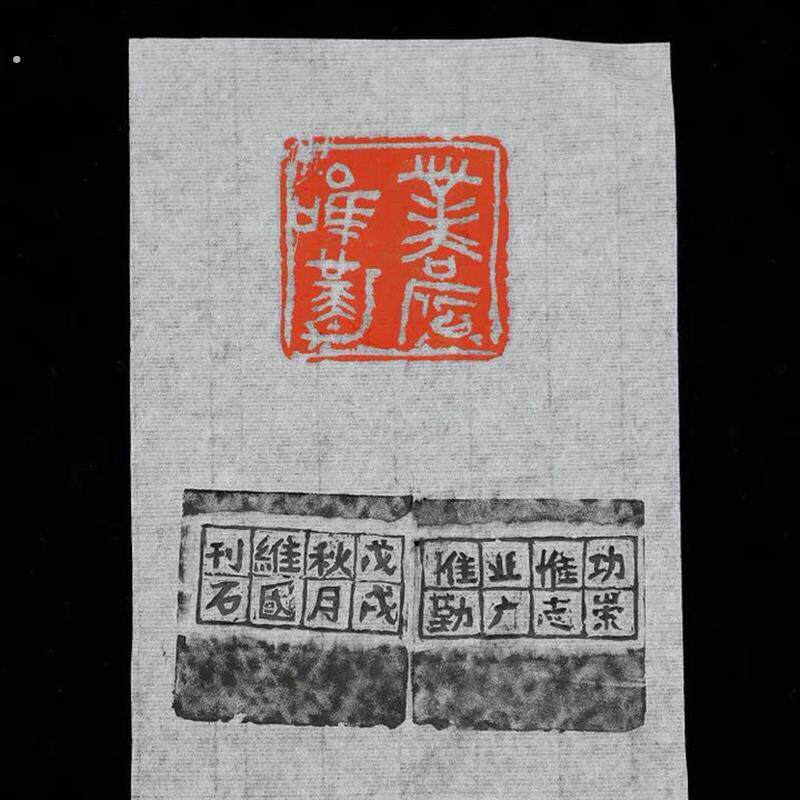 業廣
唯勤
功崇
惟志
业广
惟勤
戊戌
秋月
維國
刊石